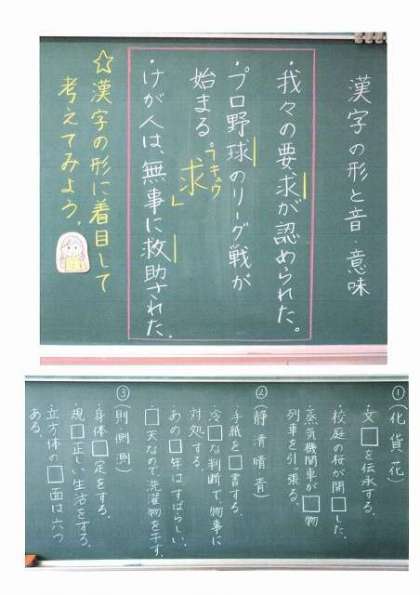 漢字の形と音・意味
・我々の要求が認められた。
・プロ野球のリーグ戦が
始まる。
「キュウ
求」
・けが人は、無事に救助された。
☆漢字の形に着目して
考えてみよう。
① (化 貨 花)
・文□を伝承する。
・校庭の桜が開□した。
・蒸気機関車が□物
列車を引っ張る。
② (静 清 晴 青)
・手紙を□書する。
・冷□な判断で物事に
対処する。
・あの□年はすばらしい。
・□天なので洗濯物を干す。
③ (則 側 測)
・身体□定をする。
・規□正しい生活をする。
・立方体の□面は六つ
ある。